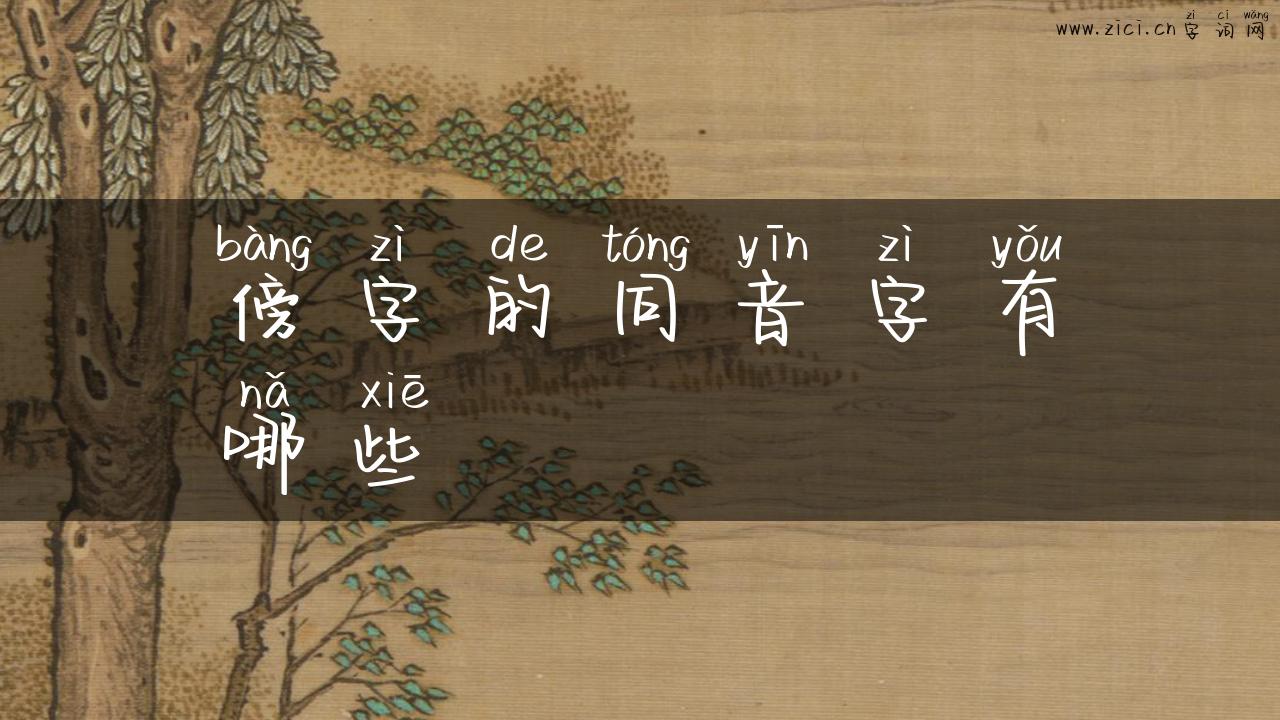 zì cí wǎng
www.zici.cn 字词网
bàng zì de tóng yīn zì yǒu
傍字的同音字有
nǎ xiē
哪些